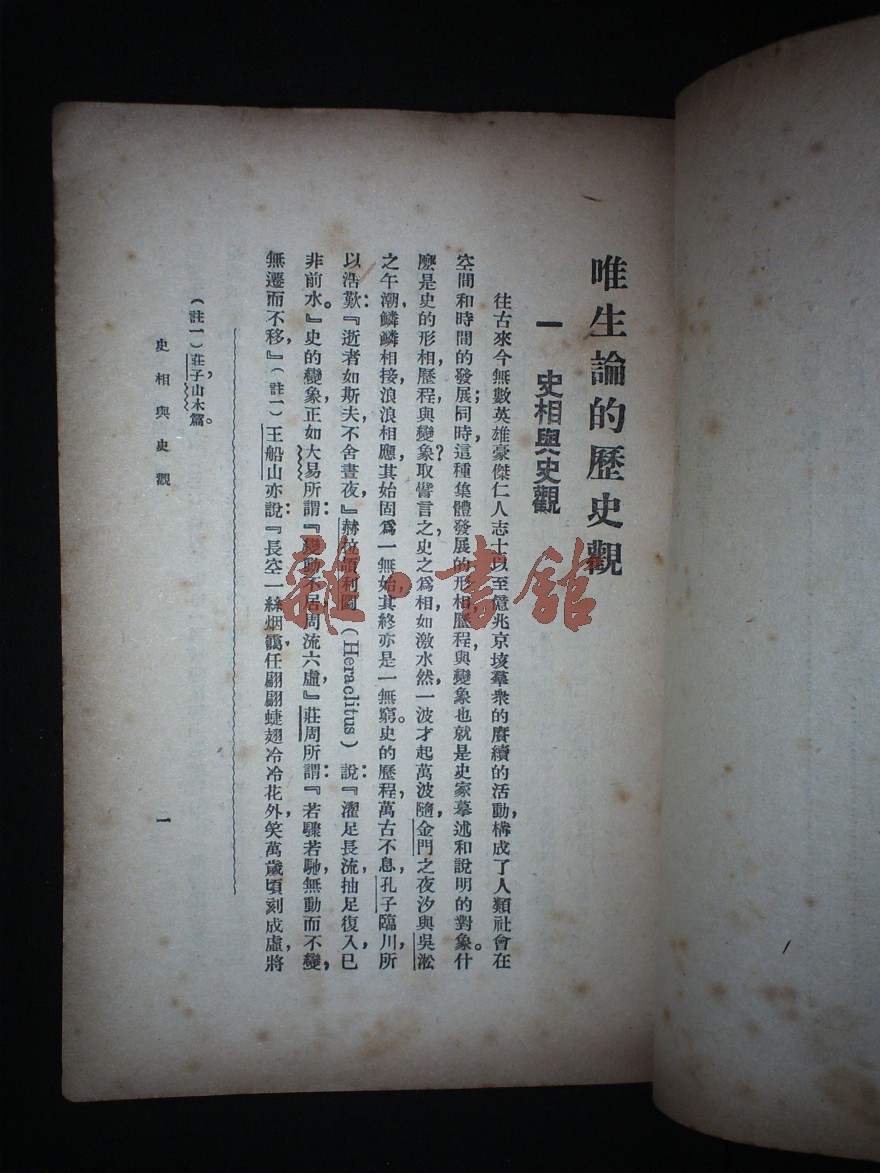 唯生論的歷史觀
一　史相與史觀
往古來今無數英雄豪傑仁人志士以至億兆京垓羣衆的賡續的活動，構成了人類社會在
空間和時間的發展；同時這種集體發展的形相歷程與變象也就是史家摹述和說明的對象。什
麽是史的形相歷程與變象？取譬言之史之爲相如激水然一波才起萬波隨，金門之夜汐與吳淞
之午潮，鱗鱗相接浪浪相應，其始固爲一無始，其終亦是一無窮。史的歷程，萬古不息，孔子臨川，所
以浩歎：『逝者如斯夫不舍晝夜，』赫拉頡利圖（Heraclitus）說：『濯足長流，抽足復入，已
非前水。』史的變象正如大易所謂：『變動不居周流六虛，』莊周所謂：『若驟若馳，無動而不變，
無遷而不移，』（註一）王船山亦說：『長空一絲烟靄任翩翩蜨翅冷冷花外，笑萬歲頃刻成虛，將
（註一）莊子，山木篇。
史相與史觀
一
雜·書館